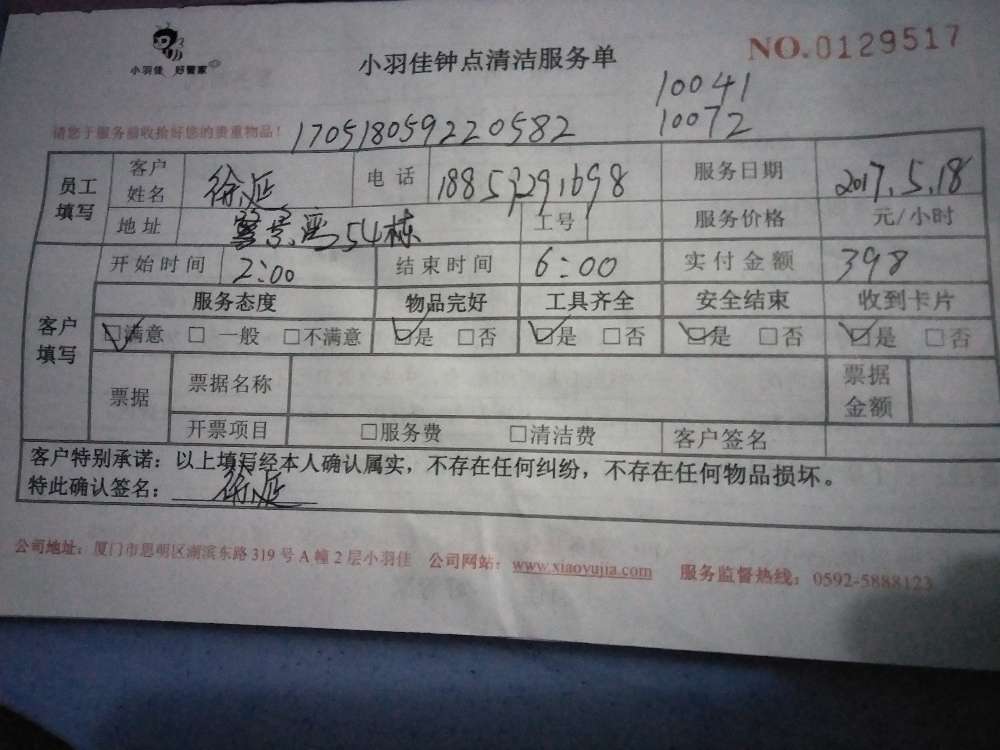 小羽佳 好管家
小羽佳钟点清洁服务单
NO.0129517
10041
请您于服务前收拾好您的贵重物品！ 170518059220582 10072
员工填写 客户姓名 徐延 电话 服务日期 2017.5.18
地址 54栋 工号 服务价格 元/小时
客户填写 开始时间 2:00 结束时间 6:00 实付金额 398
服务态度 物品完好 工具齐全 安全结束 收到卡片
☑满意 □一般 □不满意 ☑是 □否 ☑是 □否 ☑是 □否 ☑是 □否
票据 票据名称 票据金额
开票项目 □服务费 □清洁费 客户签名
客户特别承诺：以上填写经本人确认属实，不存在任何纠纷，不存在任何物品损坏。
特此确认签名： 徐延
公司地址：厦门市思明区湖滨东路319号A幢2层小羽佳 公司网站：www.xiaoyujia.com 服务监督热线：0592-5888123